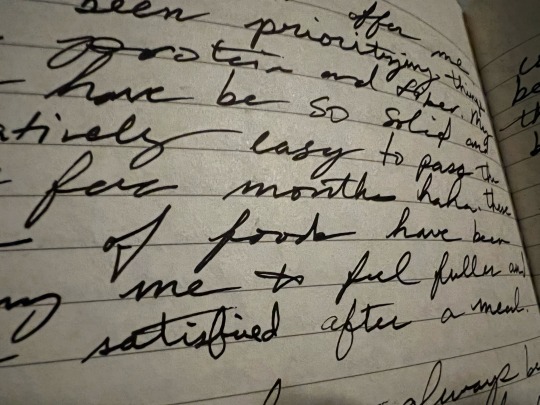 offer me
been prioritizing things
protein and fiber. My
have be so solid and
easy to pass the
few months haha. These
of foods have been
me to feel fuller and
satisfied after a meal.
always